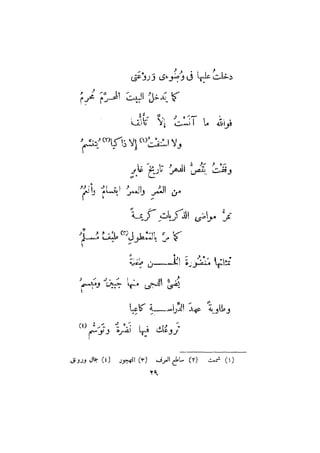 دخلت عليها في وضوءى وروعتى
كما يدخل البيت المحرَّم مُحرِمُ
فوالله ما آنستُ إلاّ تألّفا
ولا استفتُ(١) إلا ذاكيا(٢) يُتنسّمُ
وقفتْ يَقُصُّ الدهرُ تاريخَ غابرٍ
من العُمرِ والعمرُ ابتسامٌ وأنعُمُ
تمرُّ مواضى الذكريات كريمةً
كما مرّ بالمَمْطولِ(٣) طيفٌ مُسلِّمُ
تمثلتها منضُورةَ الحُسن غضةً
يُضئ الدجى منها جَبينٌ ومَبسِمُ
وطاويةً عهدَ الدِّراسةِ كاعِباً
تروعُك فيها نَضْرةٌ وتَوسُّم(٤)
(١) شممت (٢) ساطع العرف (٣) المهجور (٤) جمال ورونق
٢٩